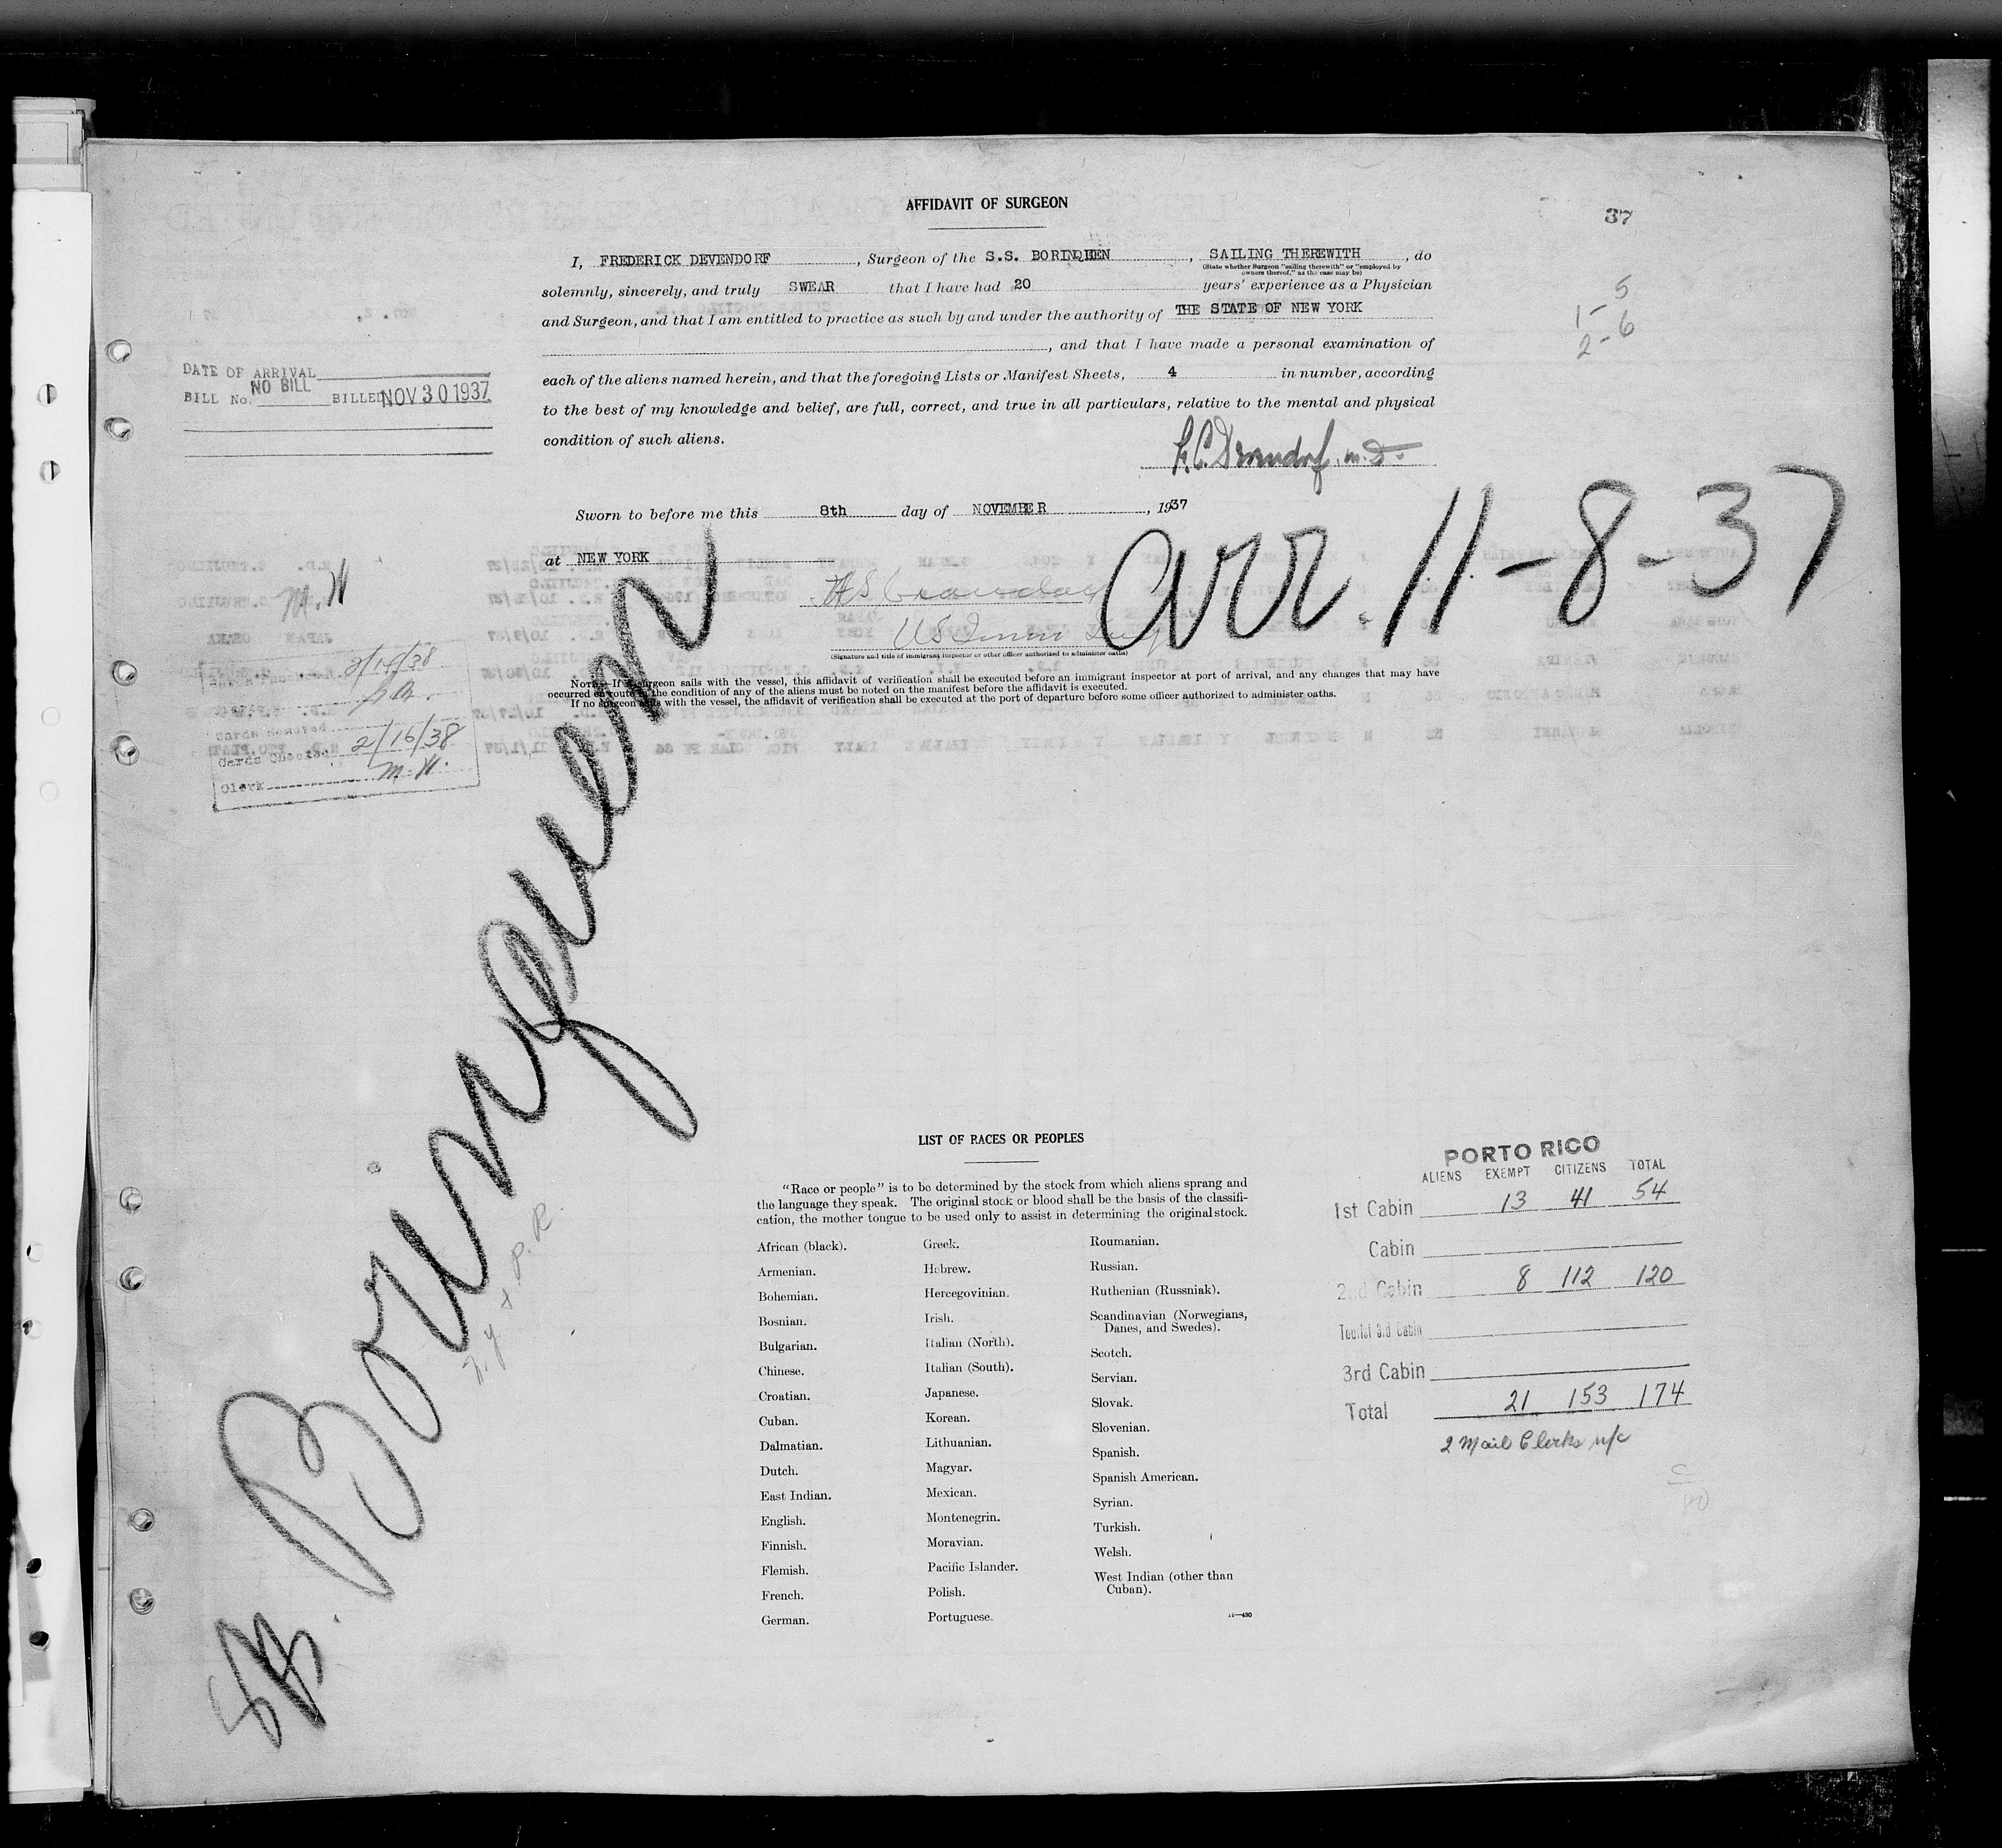 AFFIDAVIT OF SURGEON
37
I, FREDERICK DEVENDORF, Surgeon of the S.S. BORINQUEN, SAILING THEREWITH, do
(State whether Surgeon "sailing therewith" or "employed by
owners thereof," as the case may be)
solemnly, sincerely, and truly SWEAR that I have had 20 years' experience as a Physician
and Surgeon, and that I am entitled to practice as such by and under the authority of THE STATE OF NEW YORK
, and that I have made a personal examination of
each of the aliens named herein, and that the foregoing Lists or Manifest Sheets, 4 in number, according
to the best of my knowledge and belief, are full, correct, and true in all particulars, relative to the mental and physical
condition of such aliens.
1-5
2-6
DATE OF ARRIVAL
BILL No. NO BILL BILLED NOV 30 1937
F.C. Devendorf, M.D.
Sworn to before me this 8th day of NOVEMBER, 1937
at NEW YORK
arr. 11-8-37
US Immi Insp
(Signature and title of immigrant inspector or other officer authorized to administer oaths)
NOTE.—If a surgeon sails with the vessel, this affidavit of verification shall be executed before an immigrant inspector at port of arrival, and any changes that may have
occurred en route in the condition of any of the aliens must be noted on the manifest before the affidavit is executed.
If no surgeon sails with the vessel, the affidavit of verification shall be executed at the port of departure before some officer authorized to administer oaths.
M.H
2/15/38
Cards Removed
Cards Checked 2/16/38
Clerk M.H.
SS. Borinquen
N.Y. & P.R.
LIST OF RACES OR PEOPLES
"Race or people" is to be determined by the stock from which aliens sprang and
the language they speak. The original stock or blood shall be the basis of the classifi-
cation, the mother tongue to be used only to assist in determining the original stock.
African (black).
Armenian.
Bohemian.
Bosnian.
Bulgarian.
Chinese.
Croatian.
Cuban.
Dalmatian.
Dutch.
East Indian.
English.
Finnish.
Flemish.
French.
German.
Greek.
Hebrew.
Hercegovinian.
Irish.
Italian (North).
Italian (South).
Japanese.
Korean.
Lithuanian.
Magyar.
Mexican.
Montenegrin.
Moravian.
Pacific Islander.
Polish.
Portuguese.
Roumanian.
Russian.
Ruthenian (Russniak).
Scandinavian (Norwegians,
Danes, and Swedes).
Scotch.
Servian.
Slovak.
Slovenian.
Spanish.
Spanish American.
Syrian.
Turkish.
Welsh.
West Indian (other than
Cuban).
PORTO RICO
ALIENS EXEMPT CITIZENS TOTAL
1st Cabin 13 41 54
Cabin
2nd Cabin 8 112 120
Tourist 3rd Cabin
3rd Cabin
Total 21 153 174
2 Mail Clerks n/c